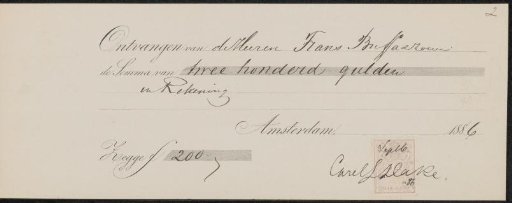 2
Ontvangen van de Heeren Frans Buffa & Zonen
de Somma van twee honderd gulden
in Rekening
Amsterdam 1886
Zegge f 200
Sept 6
86
Carel L Dake.